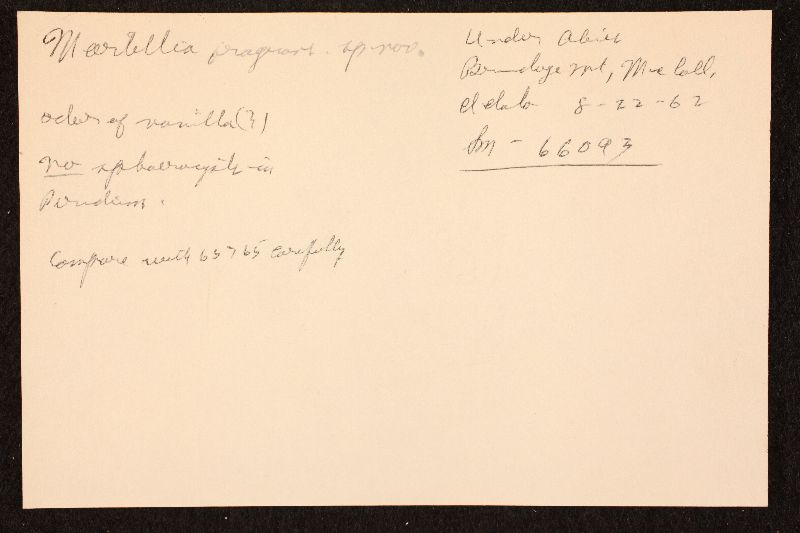 Martellia fragrans. sp nov.
odor of vanilla(?)
no sphaerocysts in
Peridium.
Compare with 65765 carefully
Under Abies
Brundage Mt, McCall,
Idaho 8-22-62
Sm - 66093